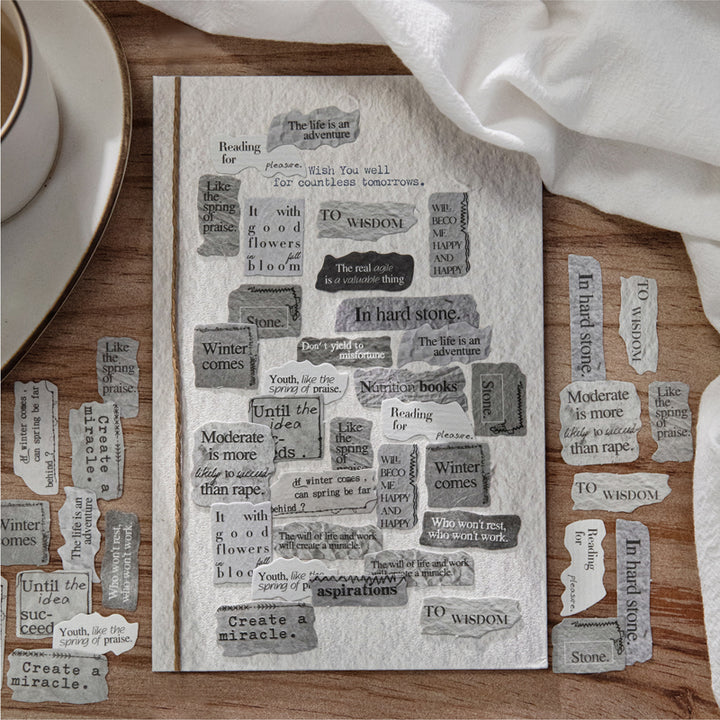 The life is an
adventure
Reading
for
pleasure.
Wish You well
for countless tomorrows.
Like
the
spring
of
praise.
It with
good
flowers
in full
bloom
TO WISDOM
WILL
BECO
ME
HAPPY
AND
HAPPY
The real agile
is a valuable thing
Stone.
In hard stone.
Winter
comes
Don't yield to
misfortune
The life is an
adventure
Youth, like the
spring of praise.
Nutrition books
Stone.
Until the
idea
suc-
ds.
Reading
for
pleasure.
Like
the
spring
of
praise.
Moderate
is more
likely to succeed
than rape.
WILL
BECO
ME
HAPPY
AND
HAPPY
Winter
comes
If winter comes,
can spring be far
behind?
It with
good
flowers
in full
bloom
Who won't rest,
who won't work.
The will of life and work
will create a miracle.
The will of life and work
will create a miracle.
Youth, like the
spring of p
aspirations
Create a
miracle.
TO WISDOM
Like
the
spring
of
praise.
If winter comes,
can spring be far
behind?
Create a
miracle.
Winter
comes
The life is an
adventure
Who won't rest,
who won't work.
Until the
idea
suc-
ceed
Youth, like the
spring of praise.
Create a
miracle.
In hard stone.
TO WISDOM
Moderate
is more
likely to succeed
than rape.
Like
the
spring
of
praise.
TO WISDOM
Reading
for
pleasure.
In hard stone.
Stone.